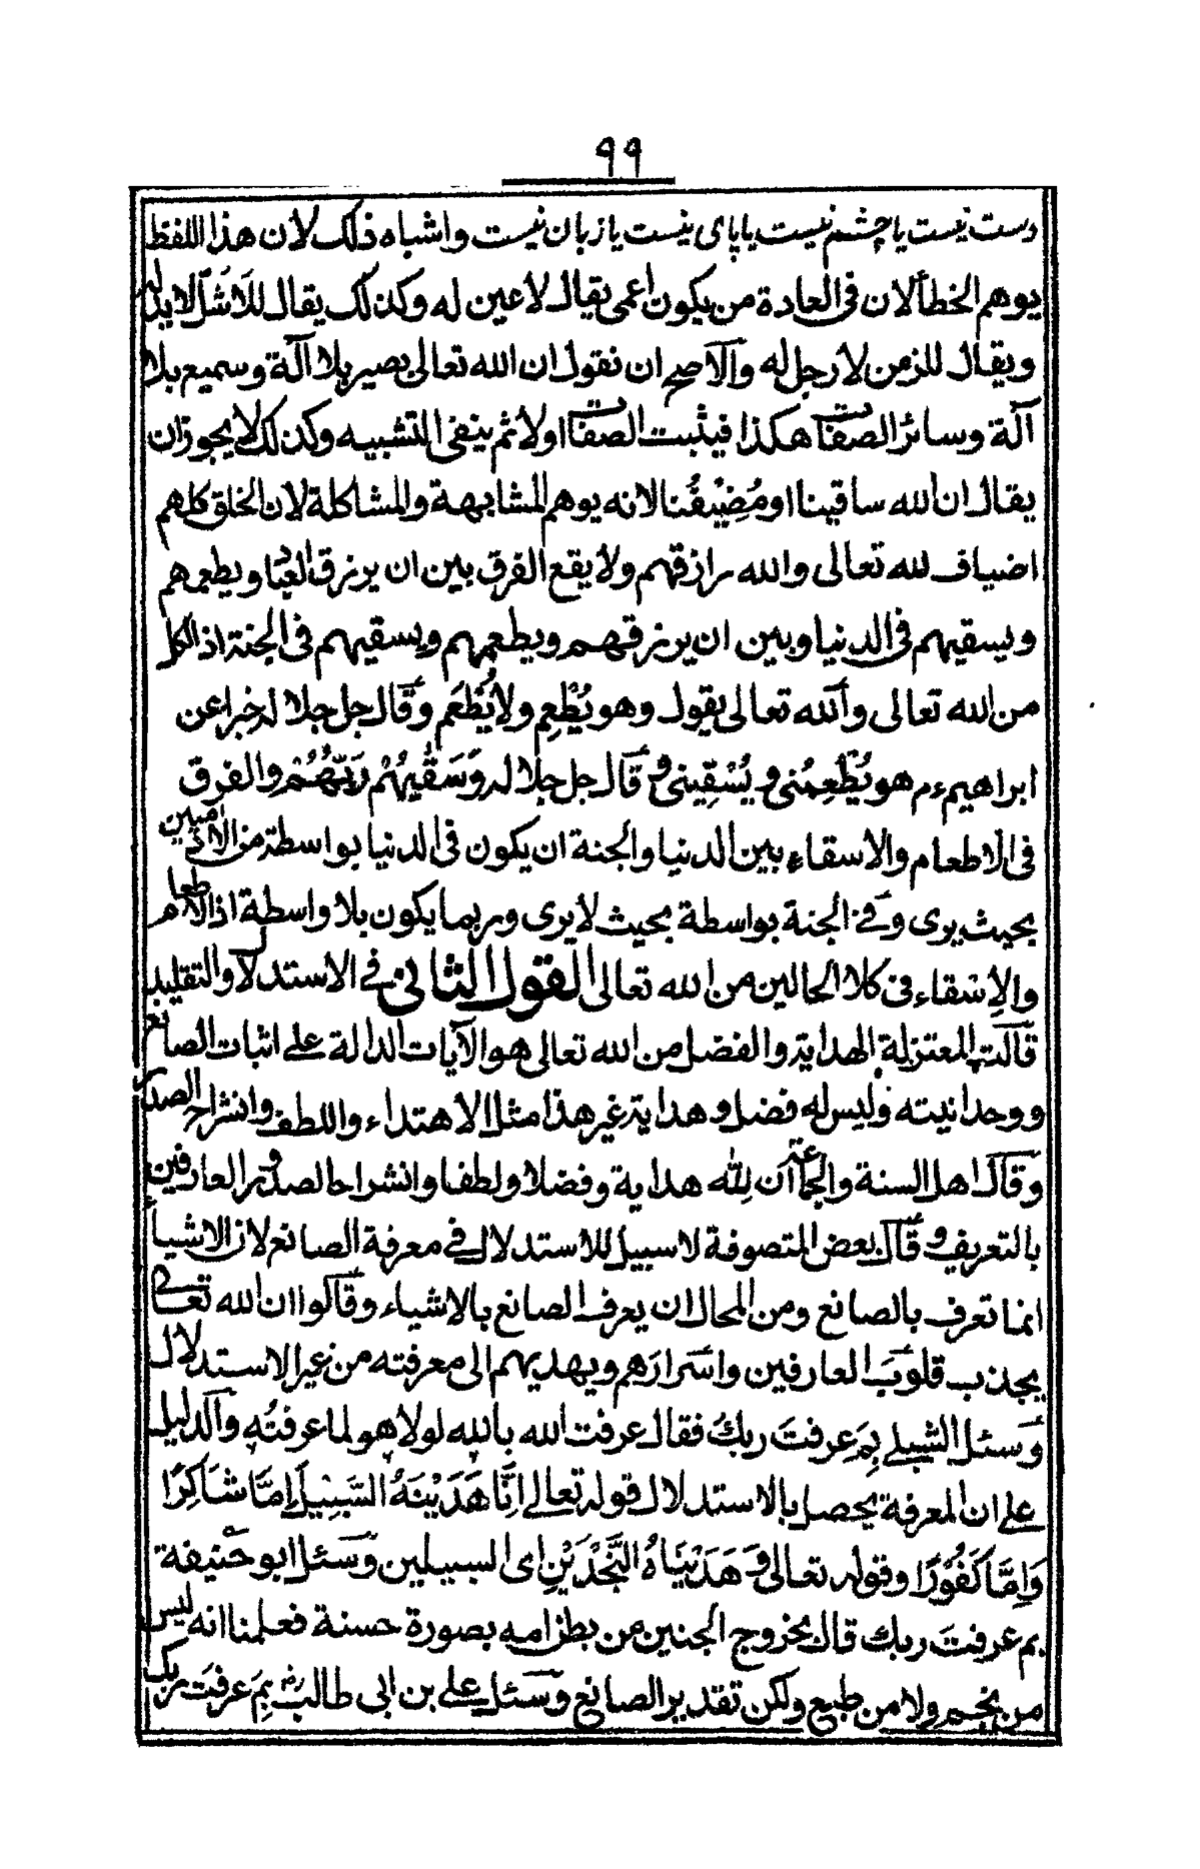 ٩٩
دست نیست یا چشم نیست یا پای نیست یا زبان نیست واشباه ذلك لان هذا اللفظ
يوهم الخطأ لان فى العادة من يكون اعمى يقال لاعين له وكذلك يقال للاشل لا يد له
ويقال للزمن لا رجل له والاصح ان نقول ان الله تعالى بصير بلا آلة وسميع بلا
آلة وسائر الصفات هكذا فيثبت الصفات اولا ثم ينفى التشبيه وكذلك لا يجوز ان
يقال ان الله ساقينا او مُضِيْفُنا لانه يوهم المشابهة والمشاكلة لان الخلق كلهم
اضياف لله تعالى والله رازقهم ولا يقع الفرق بين ان يرزق العباد ويطعمهم
ويسقيهم فى الدنيا وبين ان يرزقهم ويطعمهم ويسقيهم فى الجنة اذ الكل
من الله تعالى والله تعالى يقول وهو يُطْعِم ولا يُطْعَم وقال جل جلاله خبرا عن
ابراهيم ءم هو يُطْعِمُنى ويُسْقِينى وقال جل جلاله وَسَقٰيهُمْ رَبُّهُمْ والفرق
فى الاطعام والاسقاء بين الدنيا والجنة ان يكون فى الدنيا بواسطة من الآدميين
بحيث يرى وفى الجنة بواسطة بحيث لا يرى وربما يكون بلا واسطة اذ الاطعام
والاِسْقاء فى كلا الحالين من الله تعالى القول الثانى فى الاستدلال والتقليد
قالت المعتزلة الهداية والفضل من الله تعالى هو الآيات الدالة على اثبات الصانع
ووحدانيته وليس له فضل وهداية غير هذا مثل الاهتداء واللطف وانشراح الصدر
وقال اهل السنة والجماعة ان لِلّٰه هداية وفضلا ولطفا وانشراحا لصدور العارفين
بالتعريف وقال بعض المتصوفة لا سبيل للاستدلال فى معرفة الصانع لان الاشياء
انما تعرف بالصانع ومن المحال ان يعرف الصانع بالاشياء وقالوا ان الله تعالى
يجذب قلوبَ العارفين واسرارَهم ويهديهم الى معرفته من غير الاستدلال
وسئل الشبلى بِمَ عرفتَ ربكَ فقال عرفت الله بالله لولا هو لما عرفتُه والدليل
على ان المعرفة يحصل بالاستدلال قوله تعالى اِنَّا هَدَيْنَهُ السَّبِيْلَ اِمَّا شَاكِرًا
وَاِمَّا كَفُوْرًا وقوله تعالى وَ هَدَيْنَاهُ النَّجْدَيْنِ اى السبيلين وسئل ابو حنيفة
بم عرفتَ ربك قال بخروج الجنين من بطن امه بصورة حسنة فعلمنا انه ليس
من نجم ولا من طبع ولكن تقدير الصانع وسئل على بن ابى طالب رض بِمَ عرفتَ ربك